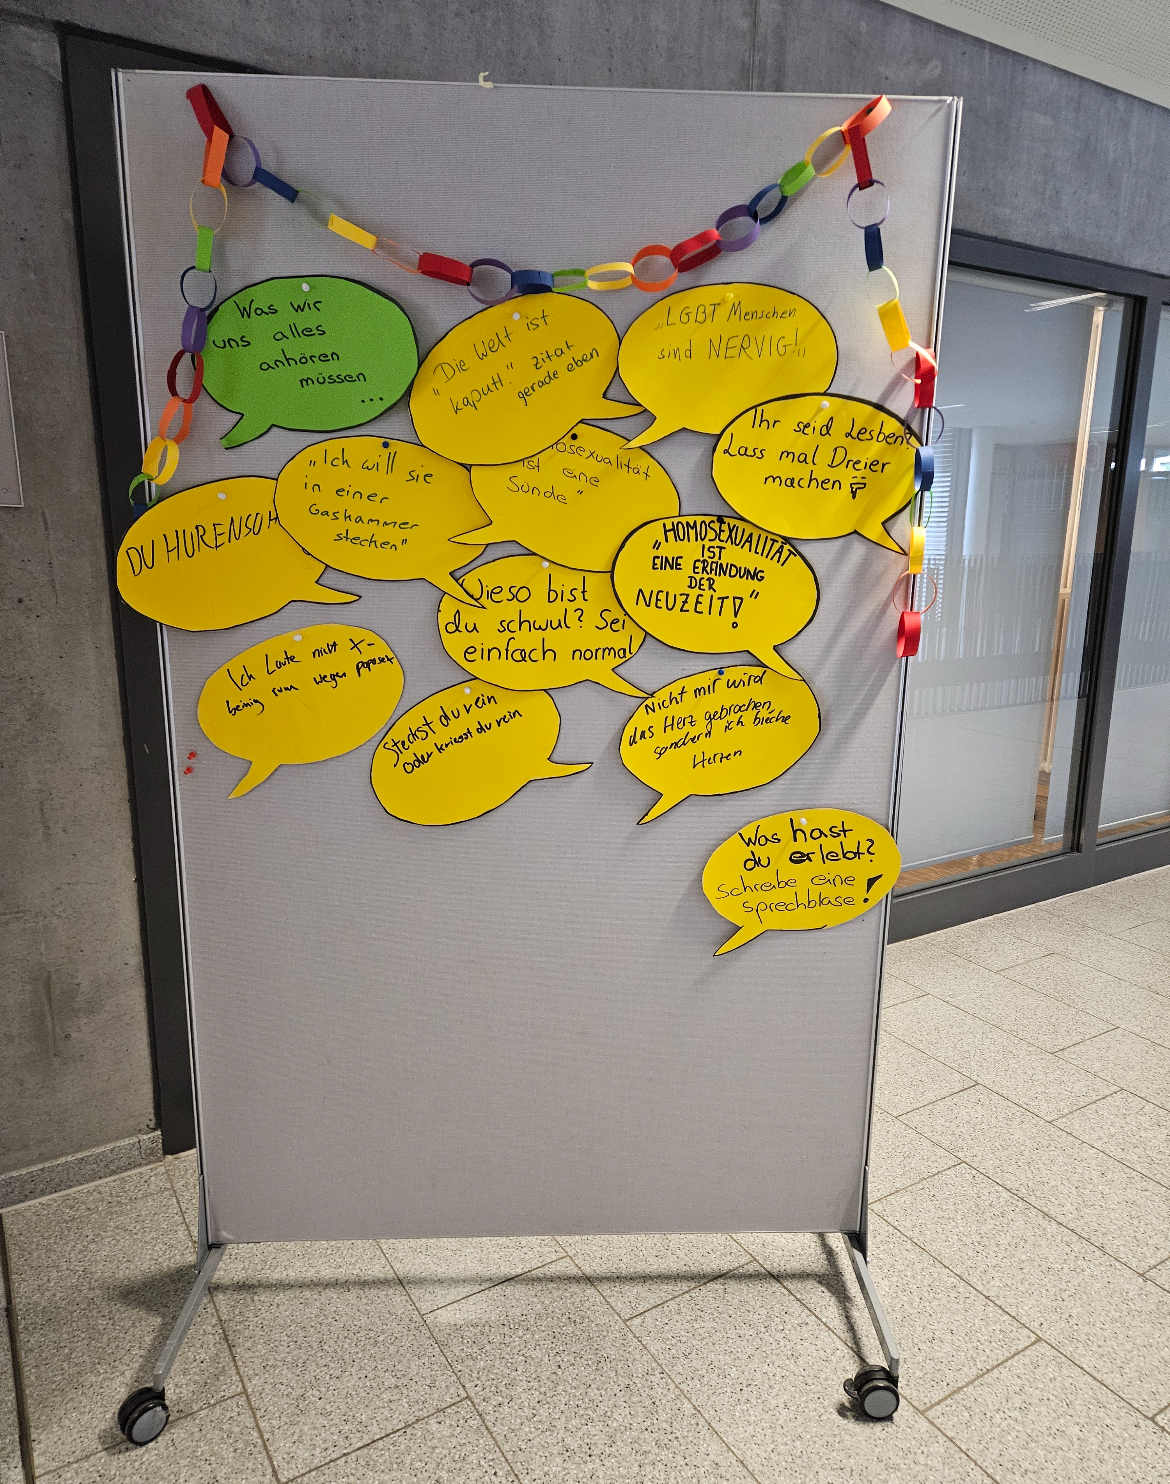 Was wir
uns alles
anhören
müssen
...
"Die Welt ist
kaputt!" Zitat
gerade eben
"LGBT Menschen
sind NERVIG!"
Ihr seid Lesben?
Lass mal Dreier
machen
"Ich will sie
in einer
Gaskammer
stecken"
osexualität
ist eine
Sünde"
DU HURENSOH
"HOMOSEXUALITÄT
IST
EINE ERFINDUNG
DER
NEUZEIT!"
Wieso bist
du schwul? Sei
einfach normal
Ich Laufe nicht X-
beinig rum wegen
Steckst du rein
oder kriegst du rein
Nicht mir wird
das Herz gebrochen,
sondern ich breche
Herzen
Was hast
du erlebt?
Schreibe eine
Sprechblase!